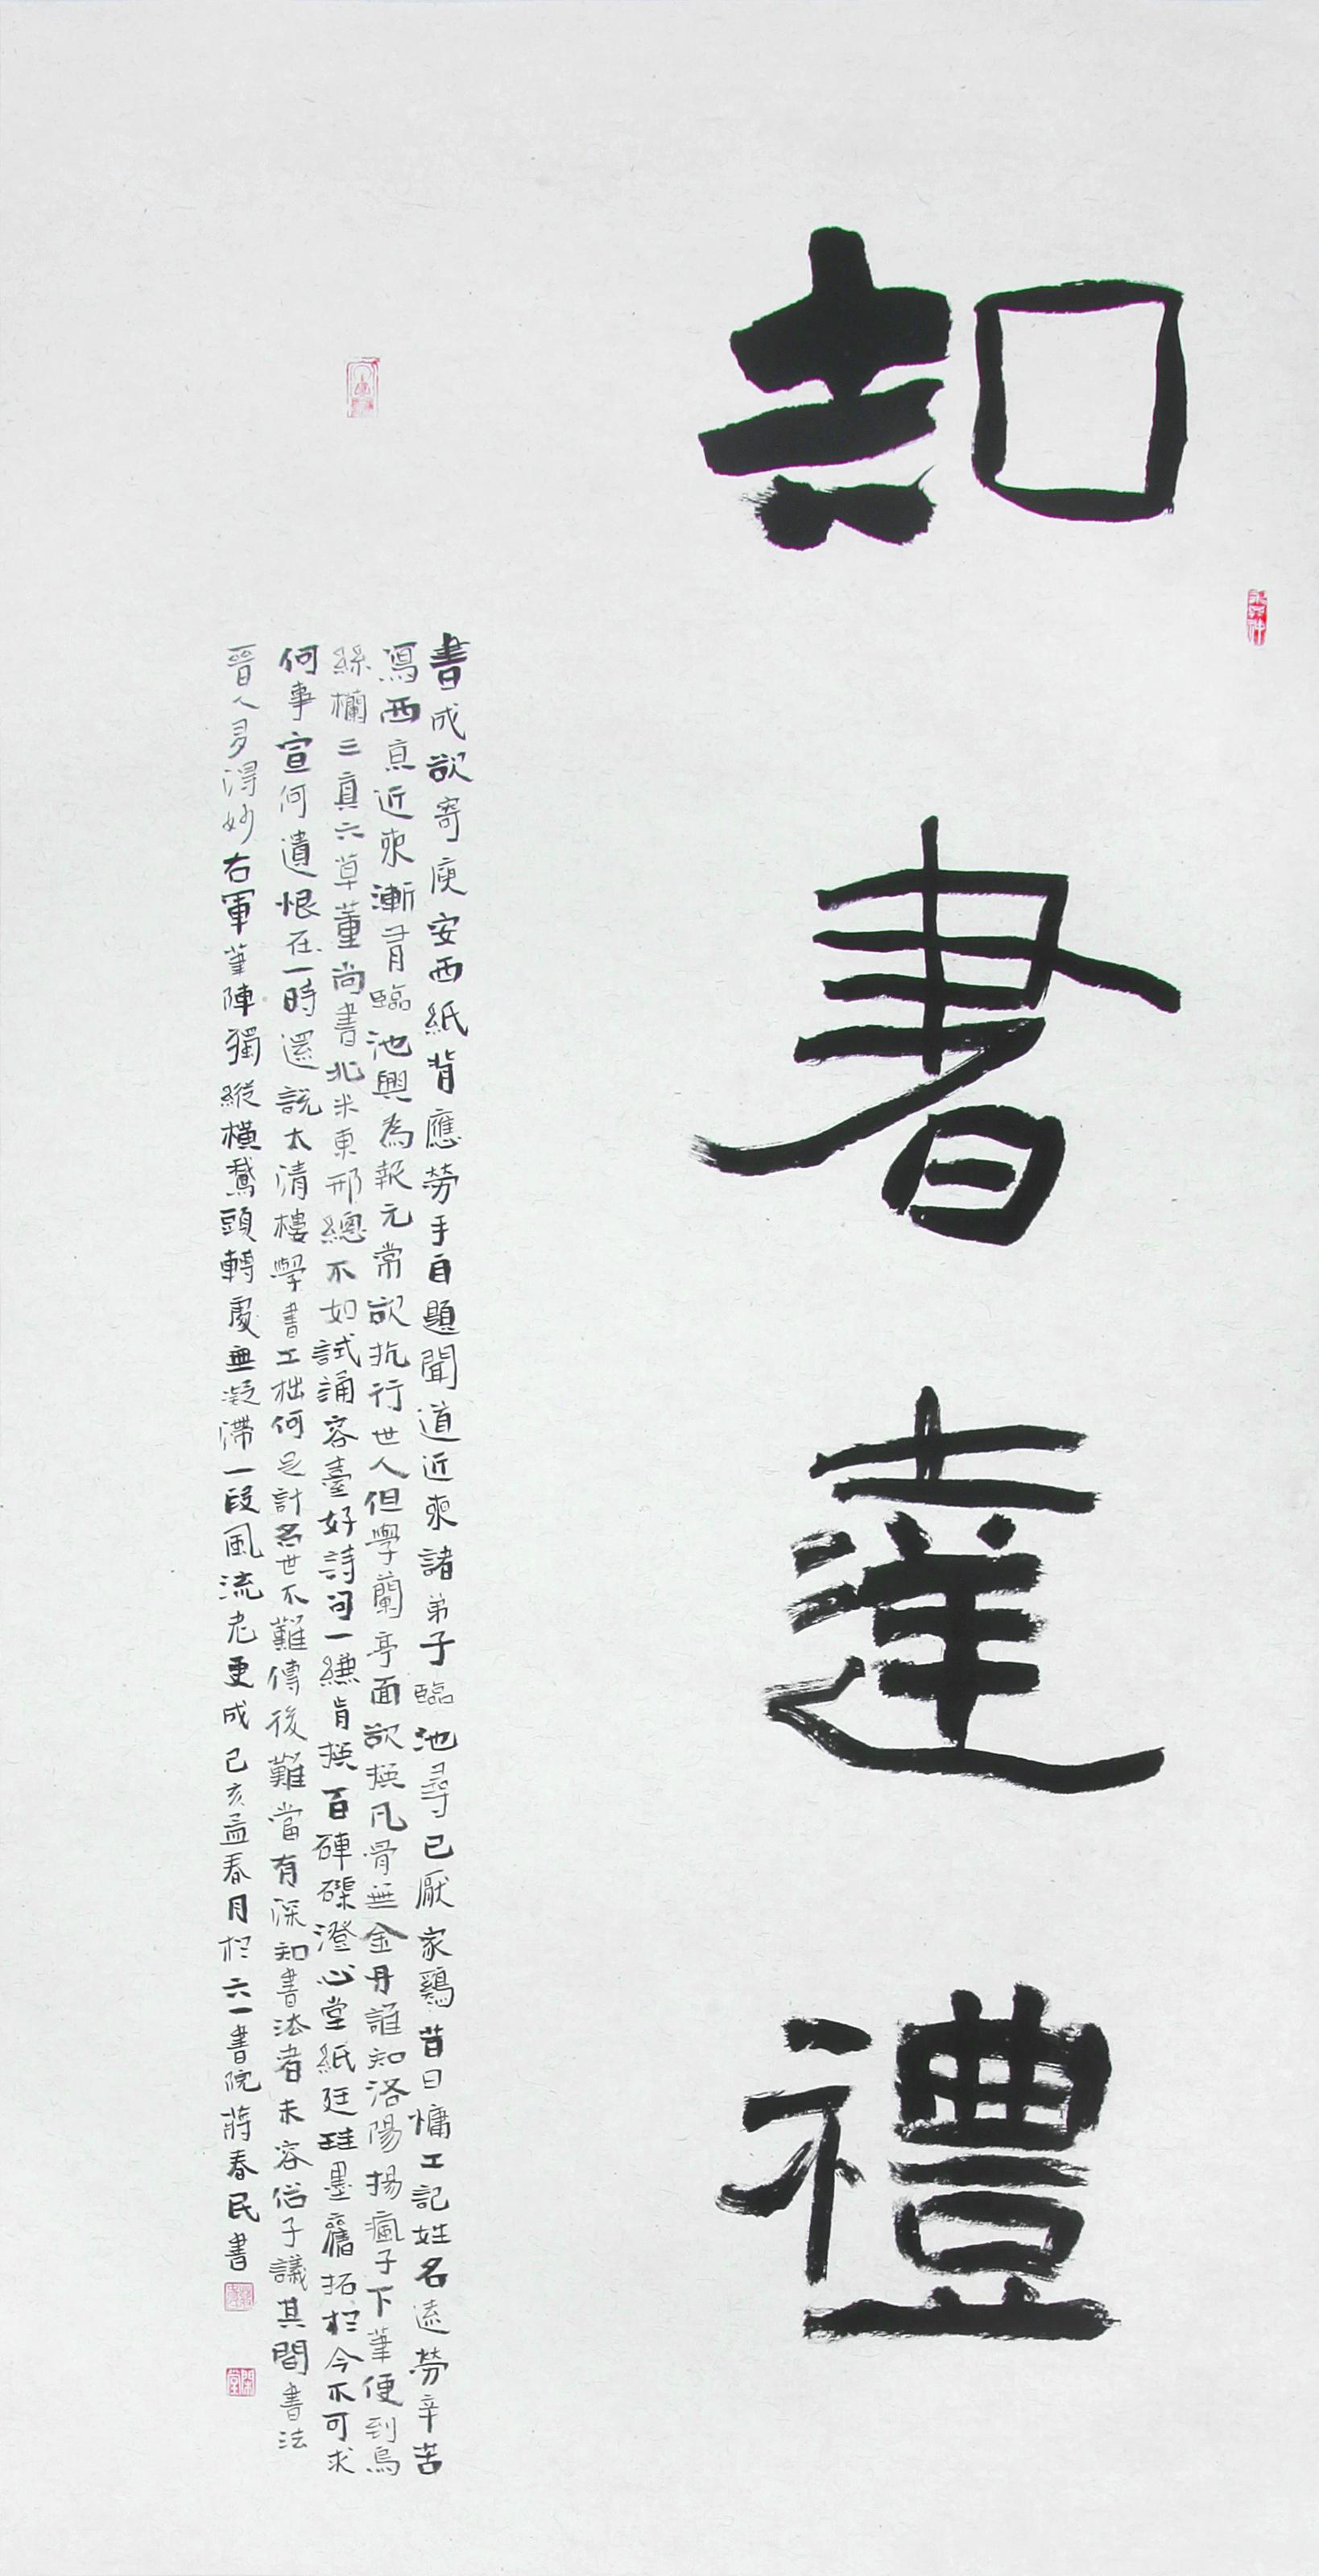 知書達禮
書成欲寄庾安西紙背應勞手自題聞道近來諸弟子臨池尋已厭家鷄昔日慵工記姓名遠勞辛苦
寫西京近來漸有臨池興為報元常欲抗行世人但學蘭亭面欲換凡骨無金丹誰知洛陽楊瘋子下筆便到烏
絲欄三真六草董尚書北米東邢總不如試誦容臺好詩句一縑肯換百硨磲澄心堂紙廷珪墨舊拓於今不可求
何事宣何遺恨在一時還說太清樓學書工拙何足計名世不難傳後難當有深知書法者未容俗子議其間書法
晉人多得妙右軍筆陣獨縱橫鵞頭轉處無凝滯一段風流老更成己亥孟春月於六一書院蔣春民書